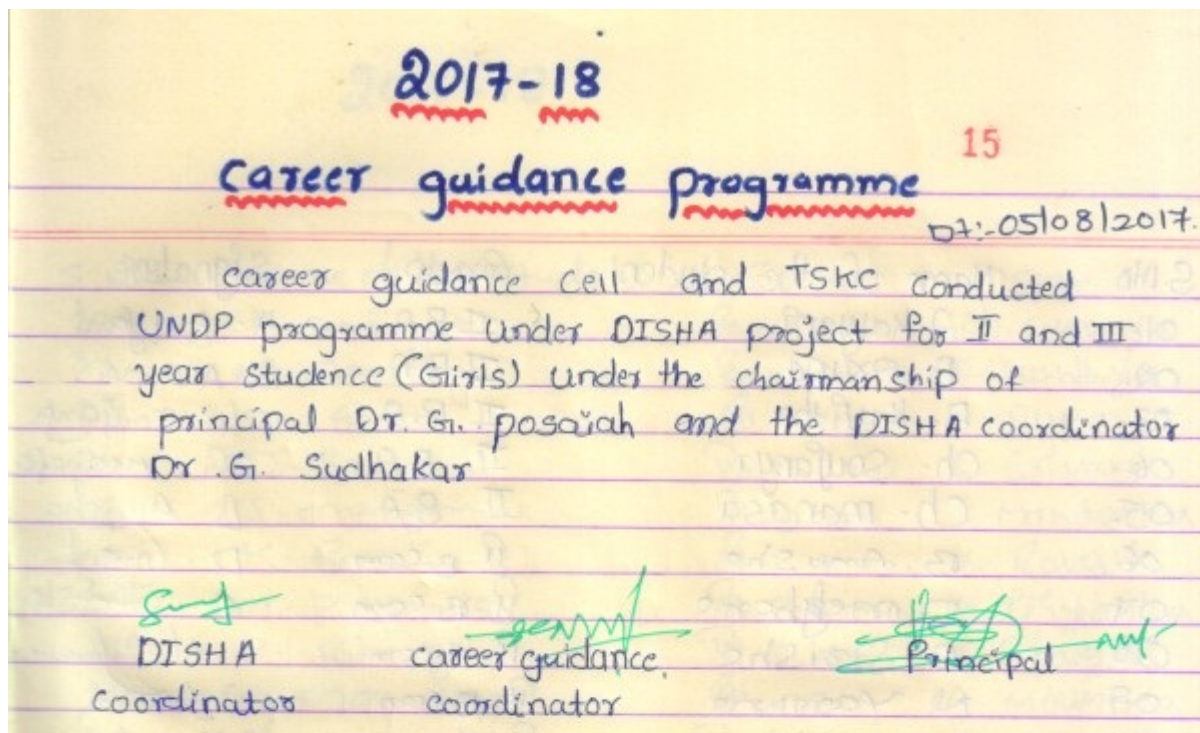 2017-18
15
Career guidance programme
Dt:-05/08/2017.
career guidance cell and TSKC conducted
UNDP programme under DISHA project for II and III
year studence (Girls) under the chairmanship of
principal Dr. G. posaiah and the DISHA coordinator
Dr .G. Sudhakar
DISHA career guidance. Principal
coordinator coordinator